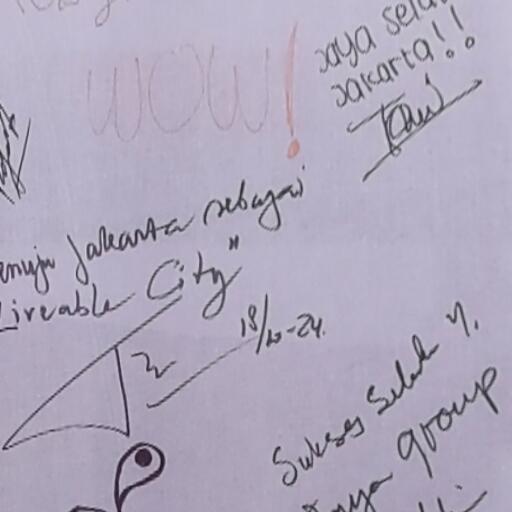 WOW!
Jaya sela
Jakarta!!
enuju Jakarta sebagai
Liveable City"
18/10-24.
Sukses Selalu
group